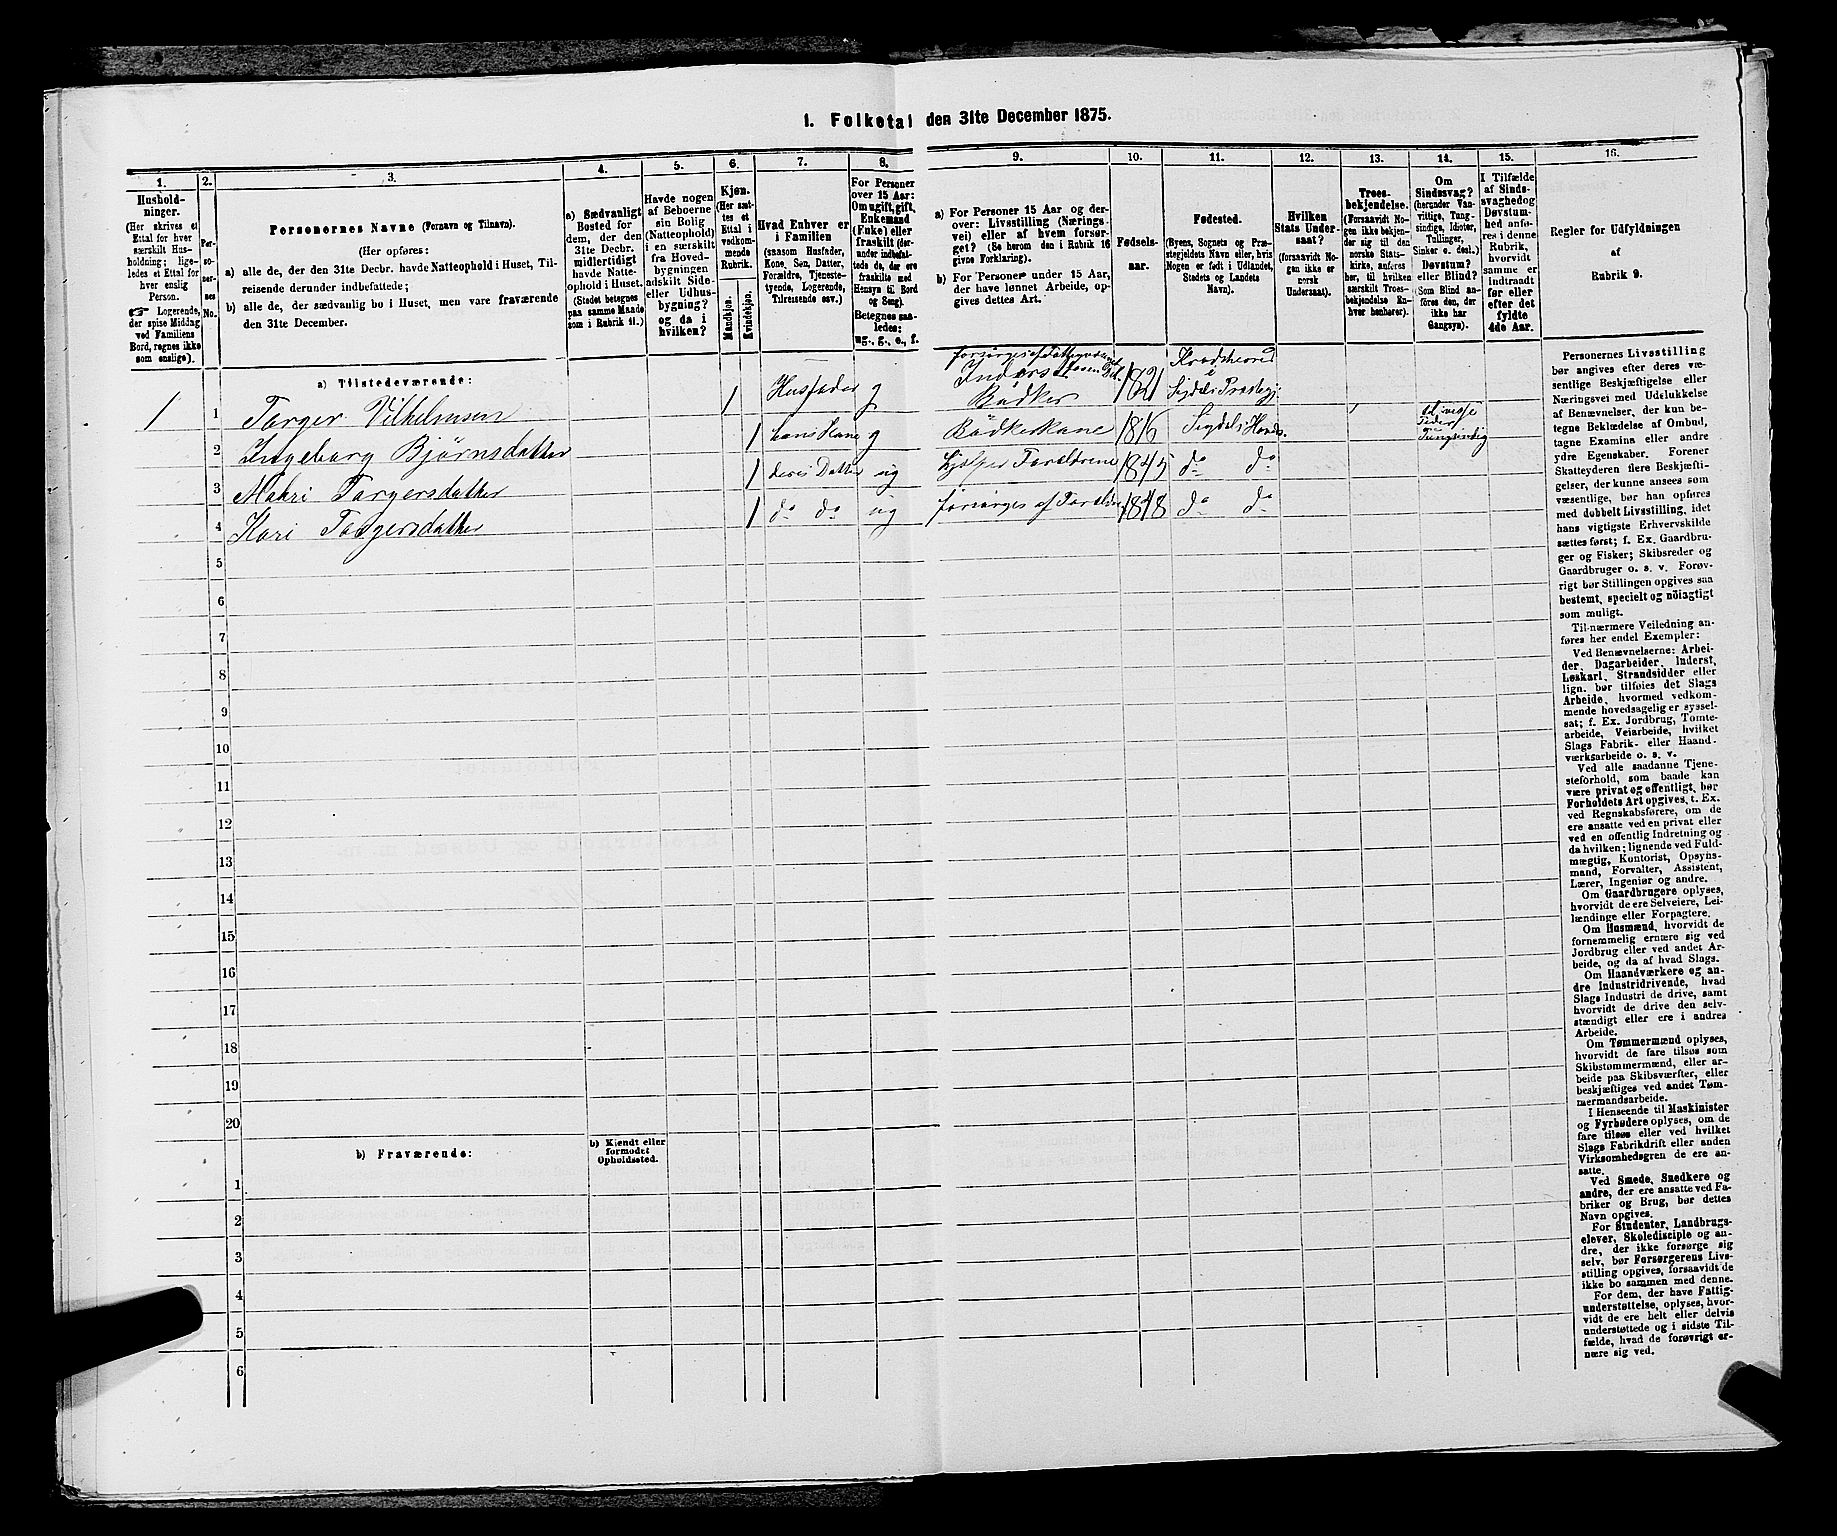 1. Folketal den 31te December 1875.
1. 2. 3. 4. 5. 6. 7. 8. 9. 10. 11. 12. 13. 14. 15. 16.
Husholdninger.
(Her skrives et
Ettal for hver
særskilt Husholdning;
ligeledes et Ettal for
hver enslig
Person.
☞ Logerende,
der spise Middag
ved Familiens
Bord, regnes ikke
som enslige).
Personernes No.
Personernes Navne (Fornavn og Tilnavn).
(Her opføres:
a) alle de, der den 31te Decbr. havde Natteophold i Huset, Tilreisende derunder indbefattede;
b) alle de, der sædvanlig bo i Huset, men vare fraværende
den 31te December.
a) Sædvanligt
Bosted for
dem, der den
31te Decbr.
midlertidigt
havde Natteophold i Huset.
(Stedet betegnes
paa samme Maade
som i Rubrik 11.)
Havde nogen
af Beboerne
sin Bolig
(Natteophold)
i en særskilt
fra Hovedbygningen
adskilt Side-
eller Udhusbygning?
og da i
hvilken?
Kjøn.
(Her sættes et
Ettal i
vedkommende
Rubrik.
Mandkjøn.
Kvindekjøn.
Hvad Enhver er
i Familien
(saasom Husfader,
Kone, Søn, Datter,
Forældre, Tjenestetyende, Logerende,
Tilreisende osv.)
For Personer
over 15 Aar:
Om ugift, gift,
Enkemand
(Enke) eller
fraskilt (derunder indbefattede de, der ere
fraskilte med
Hensyn til Bord
og Seng).
Betegnes saaledes:
ug., g., e., f.
a) For Personer 15 Aar og derover: Livsstilling (Næringsvei) eller af hvem forsørget? (Se herom den i Rubrik 16
givne Forklaring).
b) For Personer under 15 Aar,
der have lønnet Arbeide, opgives dettes Art.
Fødselsaar.
Fødested.
(Byens, Sognets og Præstegjeldets Navn eller, hvis
Nogen er født i Udlandet,
Stedets og Landets
Navn).
Hvilken
Stats Undersaat?
(forsaavidt Nogen ikke er
norsk
Undersaat).
Troesbekjendelse.
(Forsaavidt Nogen ikke bekjender sig til den
norske Statskirke, anføres
her, til hvilken
særskilt Troesbekjendelse Enhver henhører).
Om
Sindssvag?
(herunder Vanvittige, Tungsindige, Idioter,
Tullinger,
Sinker o. desl.).
Døvstum?
eller Blind?
(Som Blind anføres den, der
ikke har
Gangsyn).
I Tilfælde
af Sindssvaghed og
Døvstumhed anføres i denne
Rubrik,
hvorvidt
samme er
Indtraadt
før eller
efter det
fyldte
4de Aar.
Regler for Udfyldningen
af
Rubrik 9.
a) Tilstedeværende:
1 1 Torger Vilhelmsen 1 Husfader g forsørges af Fattigvæsenet Bødker 1821 Kradsherred i Sigdals Præstegj.
2 Ingeborg Björnsdatter 1 hans Kone g Bödkerkone 1816 Sigdals Hoveds. Tungsindig
3 Mahri Torgersdatter 1 deres Datter ug hjelper Foreldrene 1845 do do
4 Kari Torgersdatter 1 do do ug forsörges af Foreldre 1848 do do
5
6
7
8
9
10
11
12
13
14
15
16
17
18
19
20
b) Fraværende:
b) Kjendt eller
formodet
Opholdssted.
1
2
3
4
5
6
Personernes Livsstilling
bør angives efter deres væsentlige Beskjæftigelse eller
Næringsvei med Udelukkelse
af Benævnelser, der kun betegne Beklædelse af Ombud,
tagne Examina eller andre
ydre Egenskaber. Forener
Skatteyderen flere Beskjæftigelser, der kunne ansees som
væsentlige, bør han opføres
med dobbelt Livsstilling, idet
hans vigtigste Erhvervskilde
sættes først; f. Ex. Gaardbruger og Fisker; Skibsreder og
Gaardbruger o. s. v. Forøvrigt bør Stillingen opgives saa
bestemt, specielt og nöiagtigt
som muligt.
Til nærmere Veiledning anføres her endel Exempler:
Ved Benævnelserne: Arbeider, Dagarbeider, Inderst,
Løskarl, Strandsidder eller
lign. bør tilføies det Slags
Arbeide, hvormed vedkommende hovedsagelig er sysselsat; f. Ex. Jordbrug, Tomtearbeide, Veiarbeide, hvilket
Slags Fabrik- eller Haandværksarbeide o. s. v.
Ved alle saadanne Tjenesteforhold, som baade kan
være privat og offentligt, bør
Forholdets Art opgives, t. Ex.
ved Regnskabsførere, om de
ere ansatte ved en privat eller
ved en offentlig Indretning og
da hvilken; lignende ved Fuldmægtig, Kontorist, Opsynsmand, Forvalter, Assistent,
Lærer, Ingeniør og andre.
Om Gaardbrugere oplyses,
hvorvidt de ere Selveiere, Leilændinge eller Forpagtere.
Om Husmænd, hvorvidt de
fornemmelig ernære sig ved
Jordbrug eller ved andet Arbeide, og da af hvad Slags.
Om Haandværkere og andre Industridrivende, hvad
Slags Industri de drive, samt
hvorvidt de drive den selvstændigt eller ere i andres
Arbeide.
Om Tømmermænd oplyses,
hvorvidt de fare tilsøs som
Skibstømmermænd, eller arbeide paa Skibsværfter, eller
beskjæftiges ved andet Tømmermandsarbeide.
I Henseende til Maskinister
og Fyrbødere oplyses, om de
fare tilsøs eller ved hvilket
Slags Fabrikdrift eller anden
Virksomhedsgren de ere ansatte.
Ved Smede, Snedkere og
andre, der ere ansatte ved Fabriker og Brug, bør dettes
Navn opgives.
For Studenter, Landbrugselever, Skoledisciple og andre, der ikke forsørge sig
selv, bør Forsørgerens Livsstilling opgives, forsaavidt de
ikke bo sammen med denne.
For dem, der have Fattigunderstøttelse, oplyses, hvorvidt de ere helt eller delvis
understøttede og i sidste Tilfælde, hvad de forøvrigt ernære sig ved.